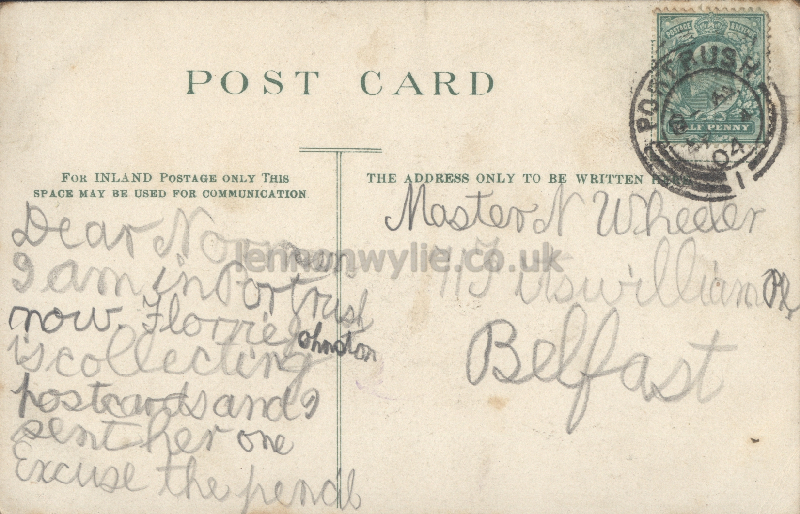 POST CARD
FOR INLAND POSTAGE ONLY THIS
SPACE MAY BE USED FOR COMMUNICATION
THE ADDRESS ONLY TO BE WRITTEN HERE
PORTRUSH
04
1
HALF PENNY
Dear Norman
I am in Portrush
now. Florrie Johnston
is collecting
postcards and I
sent her one
Excuse the pencil
Master N Wheeler
Fitswilliam Pk
Belfast
lennonwylie.co.uk